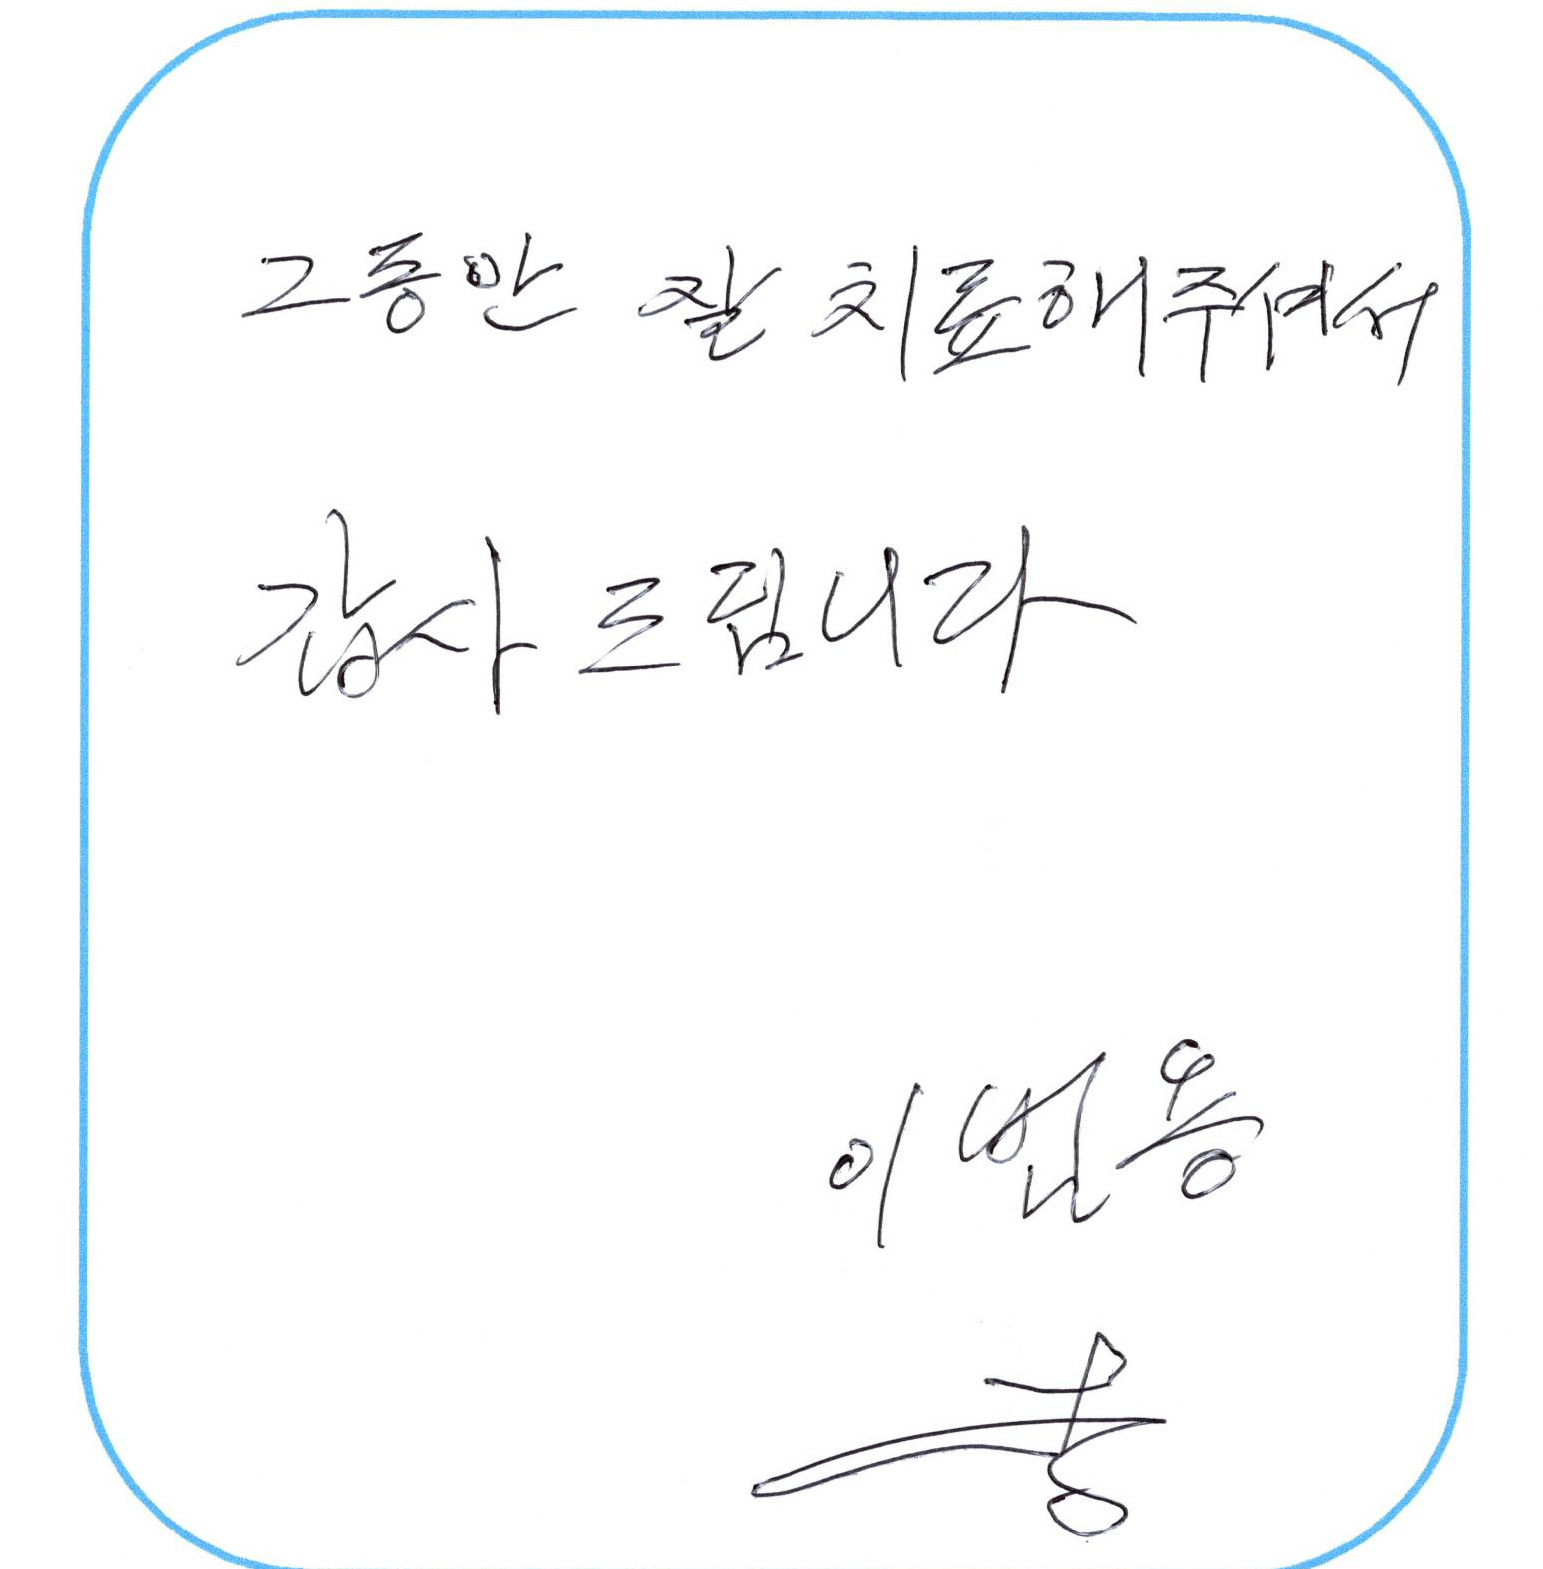 그동안 잘 치료해주셔서
감사 드립니다
이번용